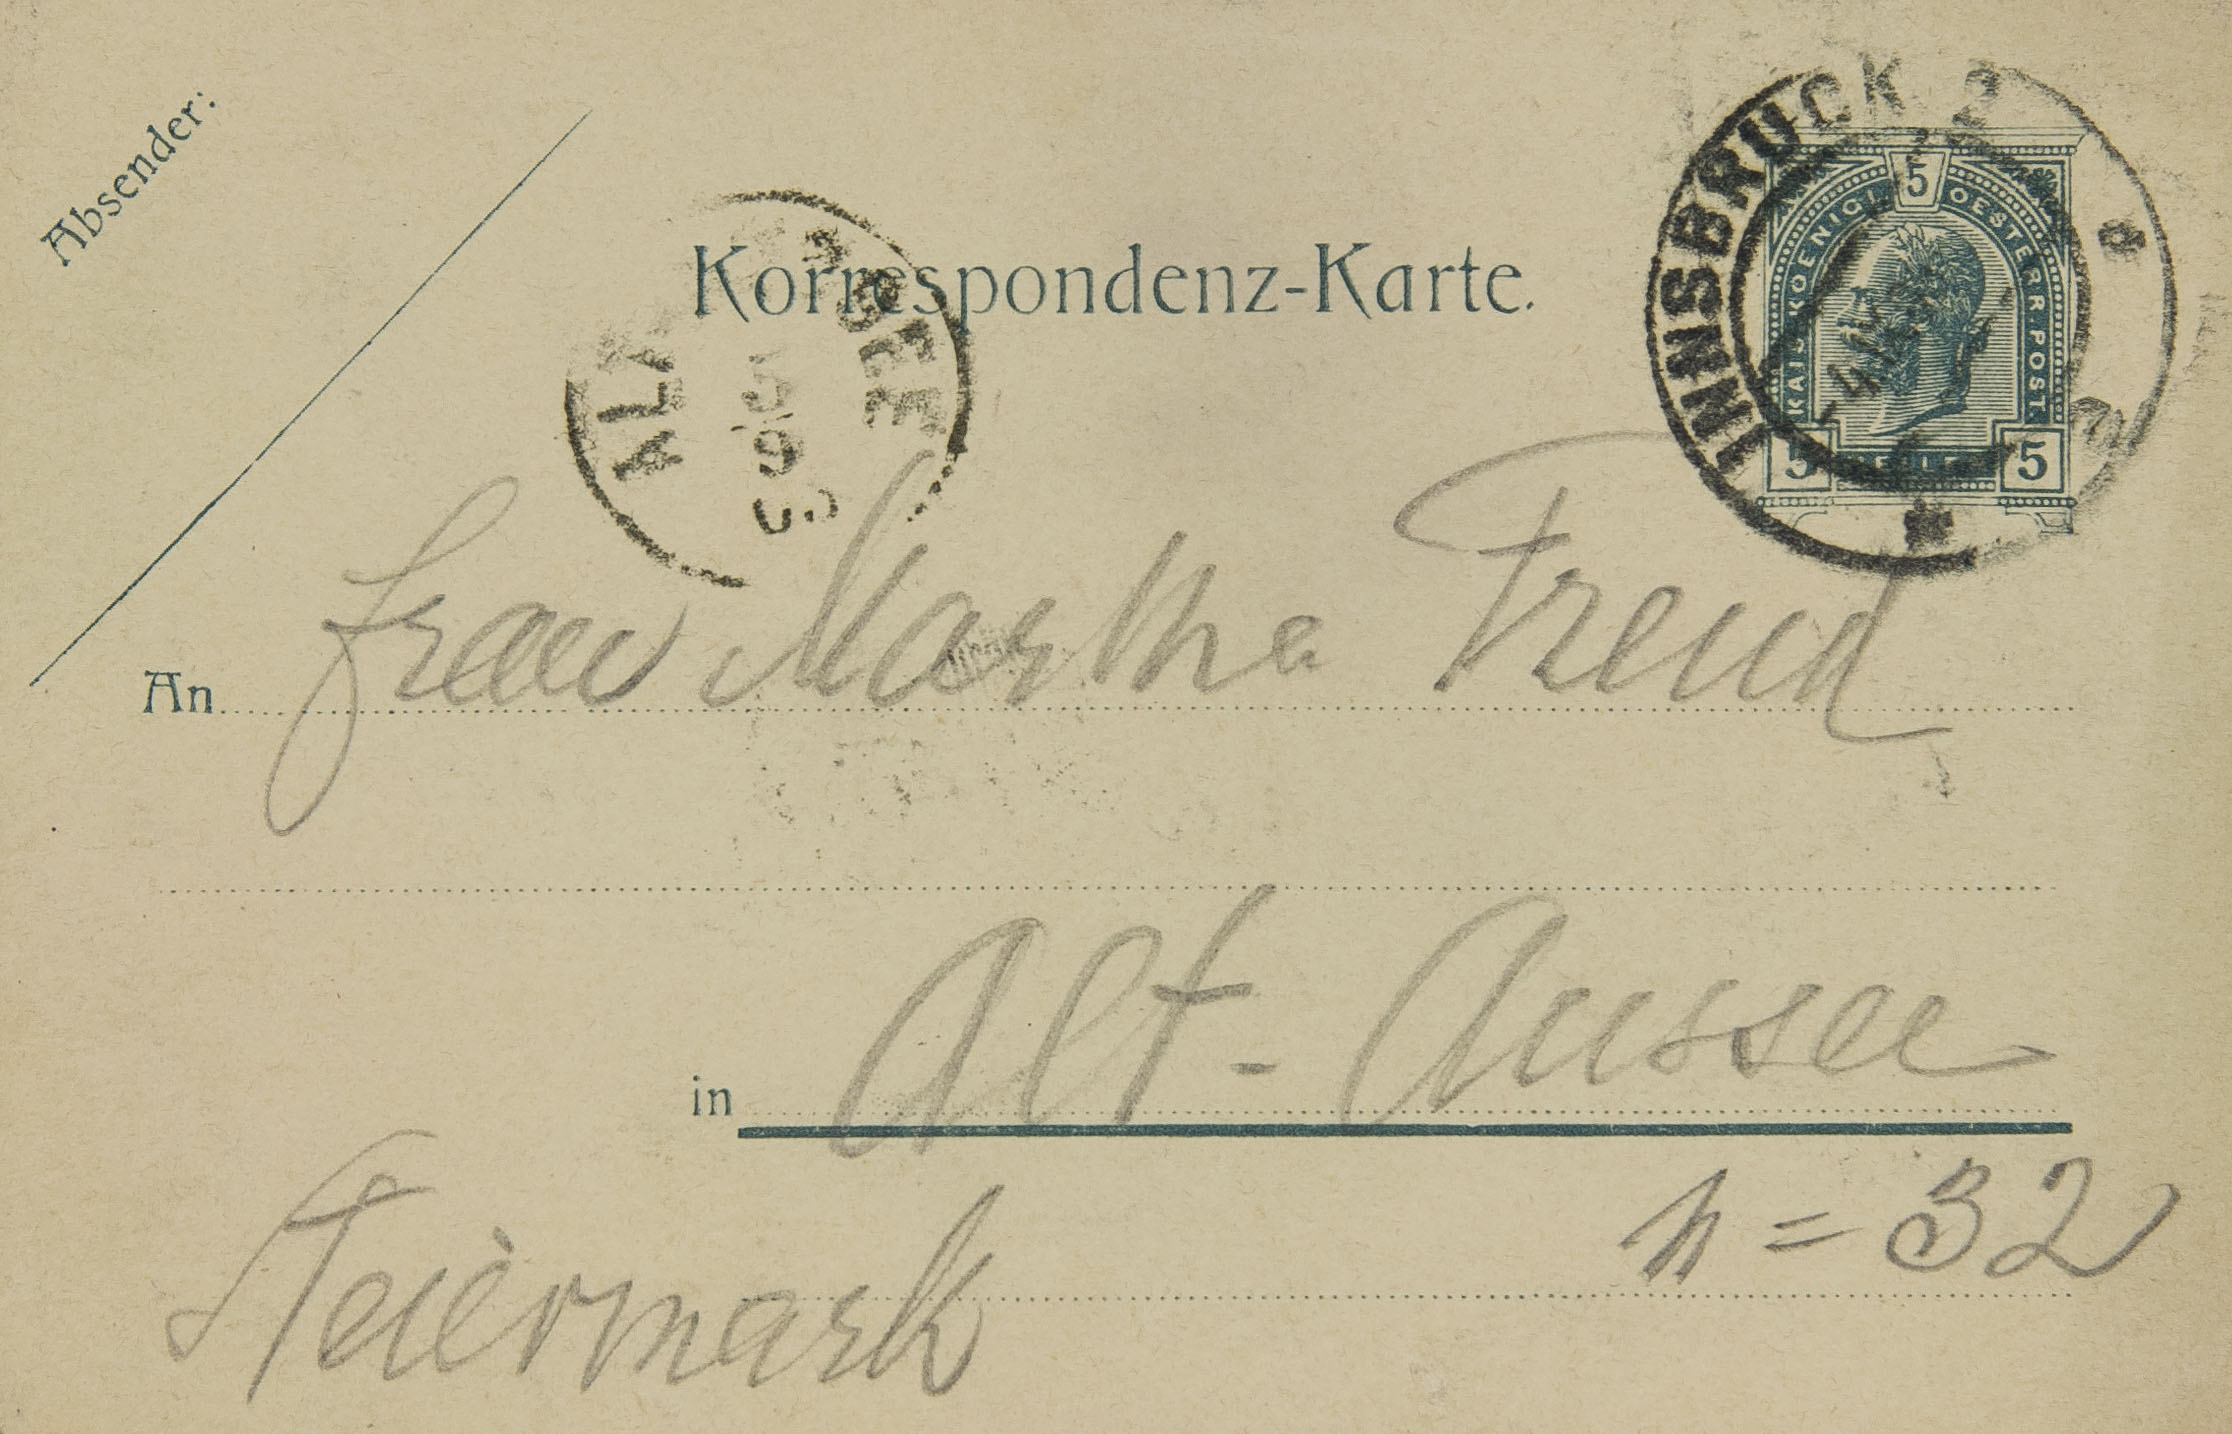 Absender:
Korrespondenz-Karte.
INNSBRUCK 2
5
KAIS. KOENIGL. OESTERR. POST.
5 HELLER 5
5 9 05
An Frau Martha Freud
in Alt-Aussee
Steiermark
n = 32